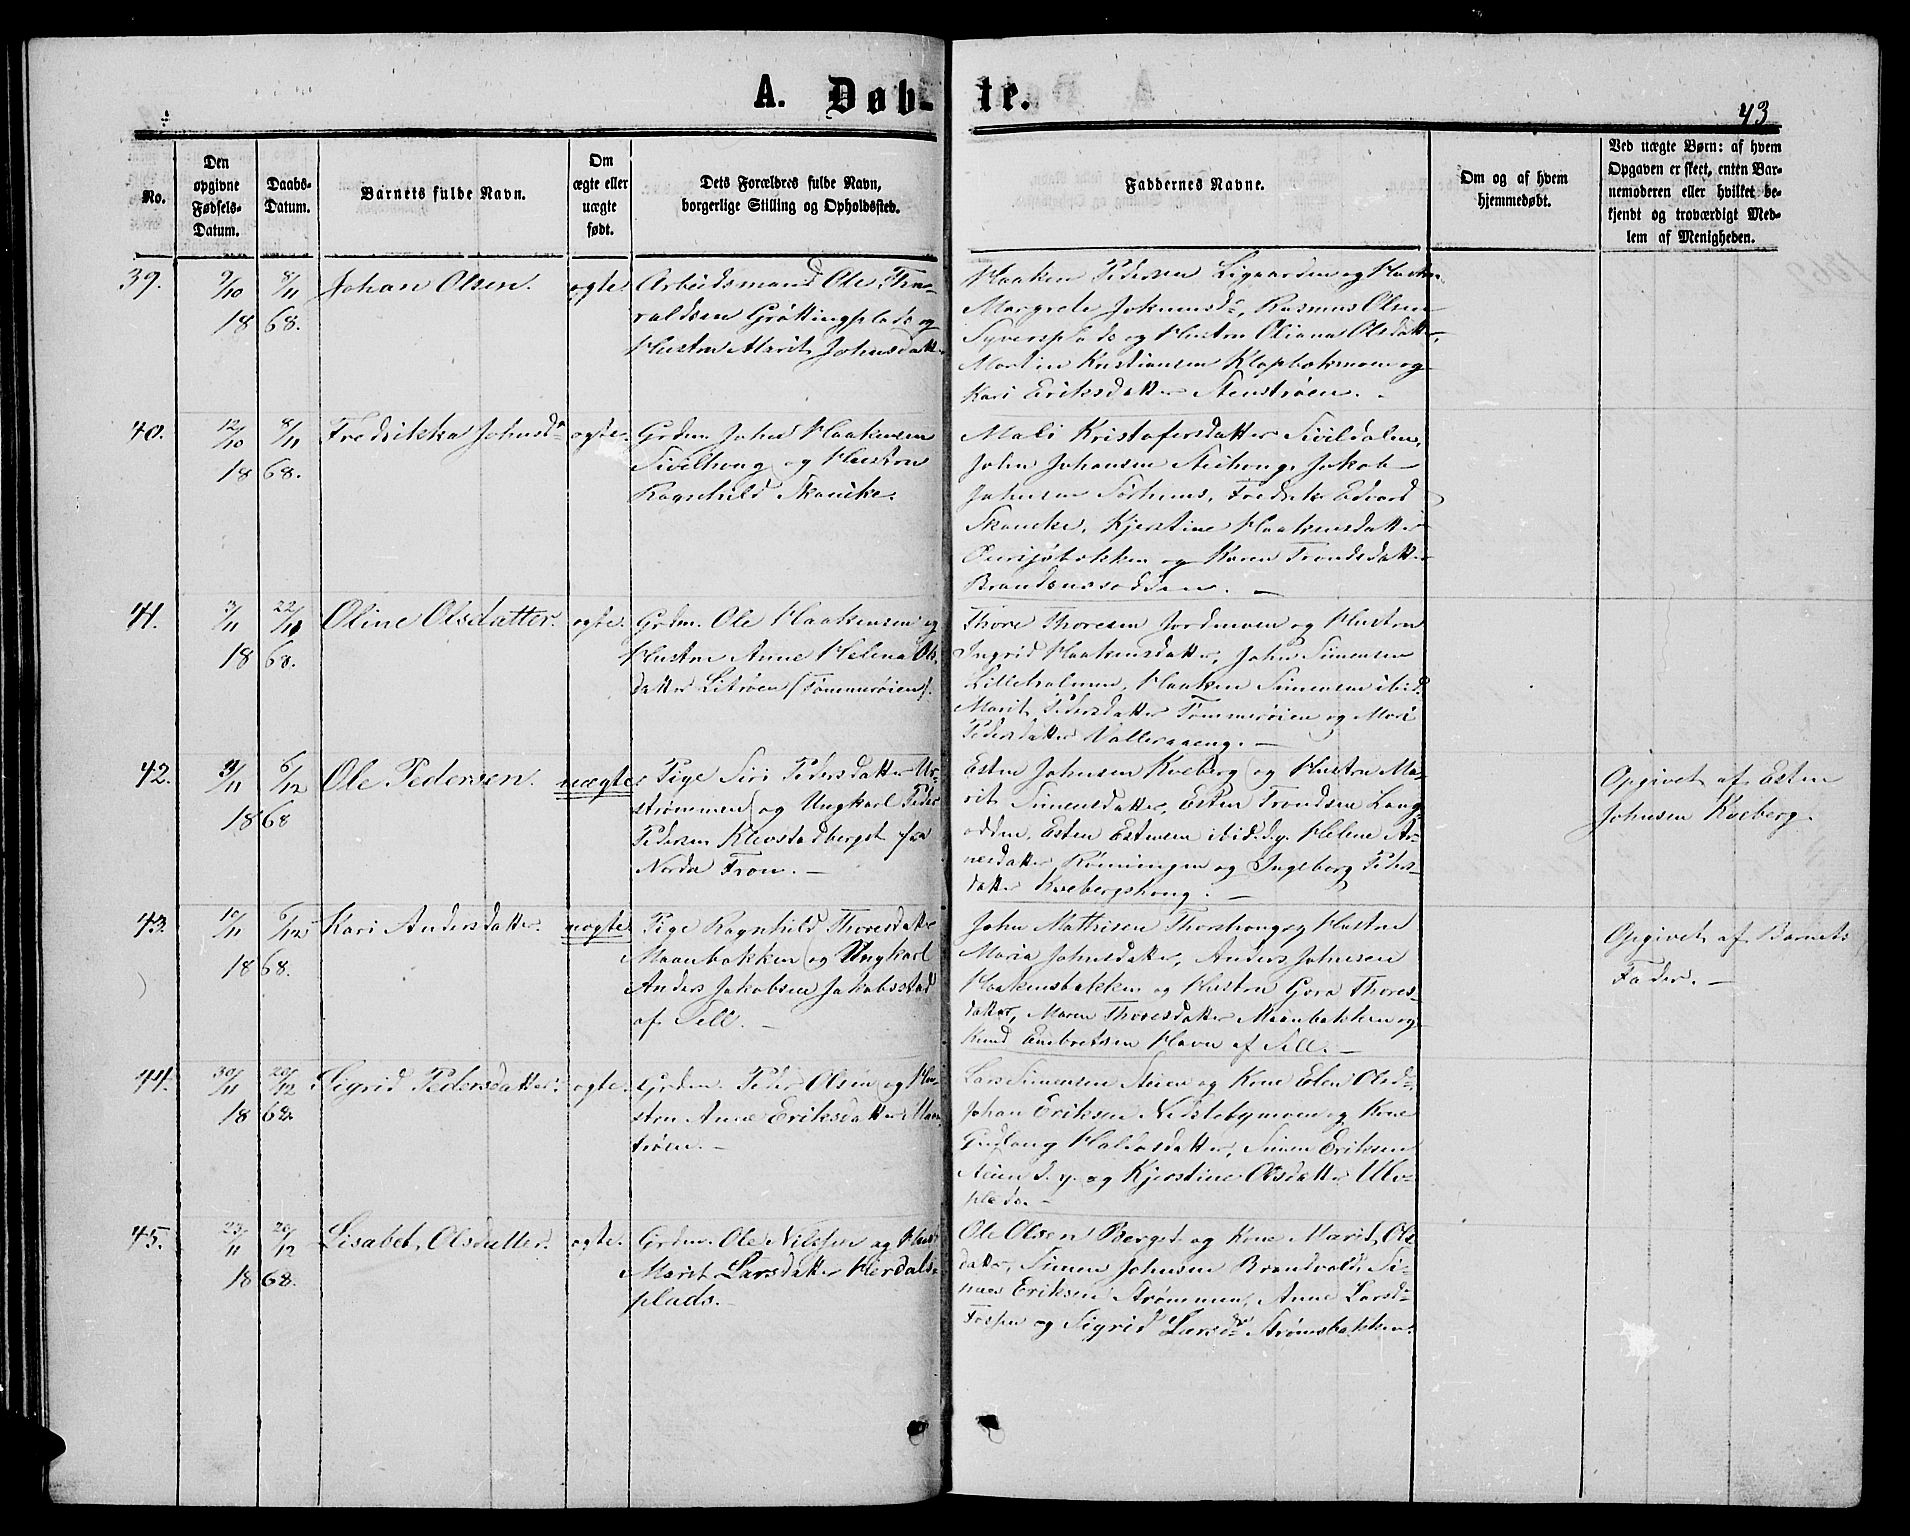 A. Døb-
te.
43
No.
Den
opgivne
Fødsels-
Datum.
Daabs-
Datum.
Barnets fulde Navn.
Om
ægte eller
uægte
født.
Dets Forældres fulde Navn,
borgerlige Stilling og Opholdssted.
Faddernes Navne.
Om og af hvem
hjemmedøbt.
Ved uægte Børn: af hvem
Opgaven er skeet, enten Bar-
nemoderen eller hvilket be-
kjendt og troværdigt Med-
lem af Menigheden.
39.
9/10
1868.
8/11
Johan Olsen.
ægte
Arbeidsmand Ole Tho-
raldsen Grøttingplads og
Hustru Marit Johnsdatter
Haaken Pedersen Ligaarden og Hustru
Margrete Johannesdr, Rasmus Olsen
Syversplads og Hustru Oliana Olsdatter,
Martin Kristiansen Klopbakmoen og
Kari Eriksdatter Stenstrøen.
40.
12/10
1868.
8/11
Fredrikka Johnsdr
ægte.
Grdm. John Haakensen
Sivilhoug og Hustru
Ragnhild Skancke.
Mali Kristofersdatter Sivildalen,
John Johansen Steihoug, Jakob
Johnsen Sørhuus, Fredrik Edvard
Skancke, Kjerstine Haakensdatter
og Karen Trondsdatter
41.
3/11
1868.
22/11
Oline Olsdatter.
ægte.
Grdm. Ole Haakensen og
Hustru Anne Helena Ols-
datter Litrøen (Tømmerøien).
Thore Thoresen Jordmoen og Hustru
Ingrid Haakensdatter, John Simensen
Lilleholmen, Haaken Simensen ibid.
Marit Pedersdatter Tømmerøien og Mari
Pedersdatter
42.
11/11
1868
6/12
Ole Pedersen.
uægte
Pige Siri Pedersdatter Ur-
strømmen og Ungkarl Peder
Pedersen Klevstadberget fra
Nordre Fron.
Esten Johnsen Kveberg og Hustru Ma-
rit Simensdatter, Esten Trondsen Lang-
odden, Esten Estensen ibid. d.y. Helene Ar-
nesdatter Rønningen og Ingeborg Peders-
datter Kveberghoug.
Opgivet af Esten
Johnsen Kveberg.
43.
10/11
1868.
6/12
Kari Andersdatter.
uægte
Pige Ragnhild Thoresdatter
Maanbakken og Ungkarl
Anders Jakobsen Jakobsstad
af Sell.
John Mathisen Thorshoug og Hustru
Maria Johnsdatter, Anders Johnsen
Haakensbakken og Hustru Goro Thores-
datter, Maren Thoresdatter Maanbakken og
Knud Embretsen Havn af Sell.
Opgivet af Barnets
Fader.
44.
30/11
1868.
20/12
Sigrid Pedersdatter.
ægte.
Grdm. Peder Olsen og Hu-
stru Anne Eriksdatter Moen-
trøen.
Lars Simensen Steien og Kone Elen Olsdr,
Johan Eriksen Nedstebymoen og Kone
Gudlaug Haldorsdatter, Simen Eriksen
Steien d.y. og Kjerstine Olsdatter Ulv-
plads.
45.
23/11
1868.
20/12
Lisabet Olsdatter.
ægte.
Grdm. Ole Nilssen og Hustru
Marit Larsdatter Herdals-
plads.
Ole Olsen Berget og Kone Marit Ols-
datter, Simen Johnsen Brandvold, Si-
men Eriksen Strømmen, Anne Larsdr
Fossen og Sigrid Larsdr Strømsbakken.